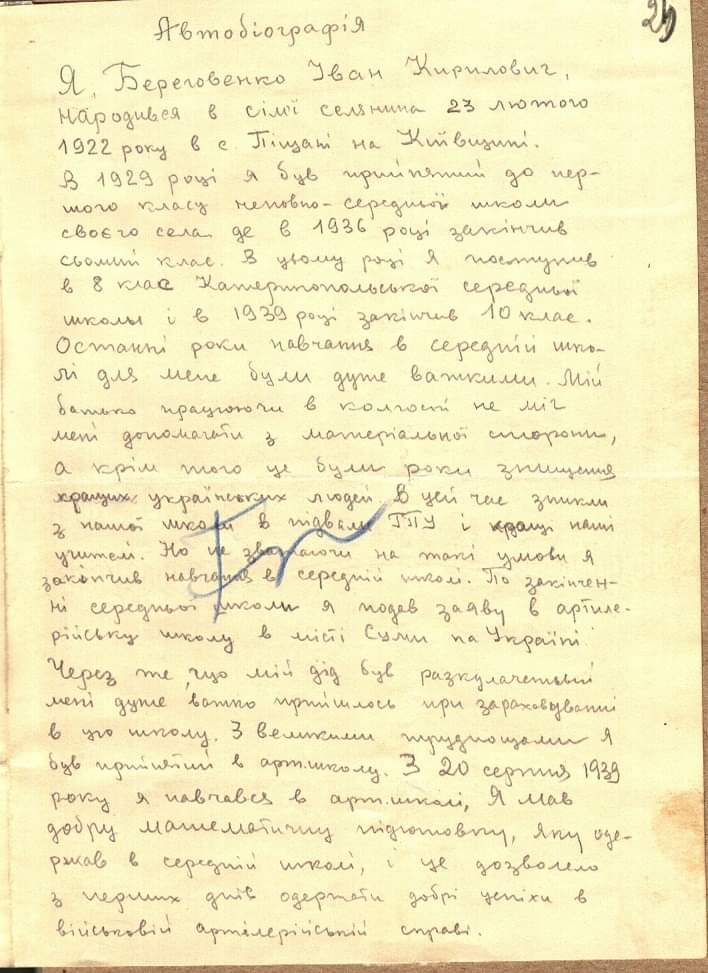 25
Автобіографія
Я, Береговенко Іван Кирилович,
народився в сім'ї селянина 23 лютого
1922 року в с. Піщані на Київщині.
В 1929 році я був прийнятий до пер-
шого класу неповно-середньої школи
своєго села де в 1936 році закінчив
сьомий клас. В цьому році я поступив
в 8 клас Катеринопольської середньої
школы і в 1939 році закінчив 10 клас.
Останні роки навчання в середній шко-
лі для мене були дуже важкими. Мій
батько працюючи в колгоспі не міг
мені допомагати з матеріальної сторони,
а крім того це були роки знищення
кращих українських людей. В цей час зникли
з нашої школи в підвали ГПУ і кращі наші
учителі. Но не зважаючи на такі умови я
закончив навчання в середній школі. По закінчен-
ні середньої школи я подав заяву в артиле-
рійську школу в місті Суми на Україні.
Через те, що мій дід був разкулачений
мені дуже важко прийшлось при зарахову­ванні
в цю школу. З великими труднощами я
був прийнятий в арт.школу. З 20 серпня 1939
року я навчався в арт.школі, Я мав
добру математичну підготовку, яку оде-
ржав в середній школі, і це дозволело
з перших днів одержати добрі успіхи в
військовій артилерійській справі.